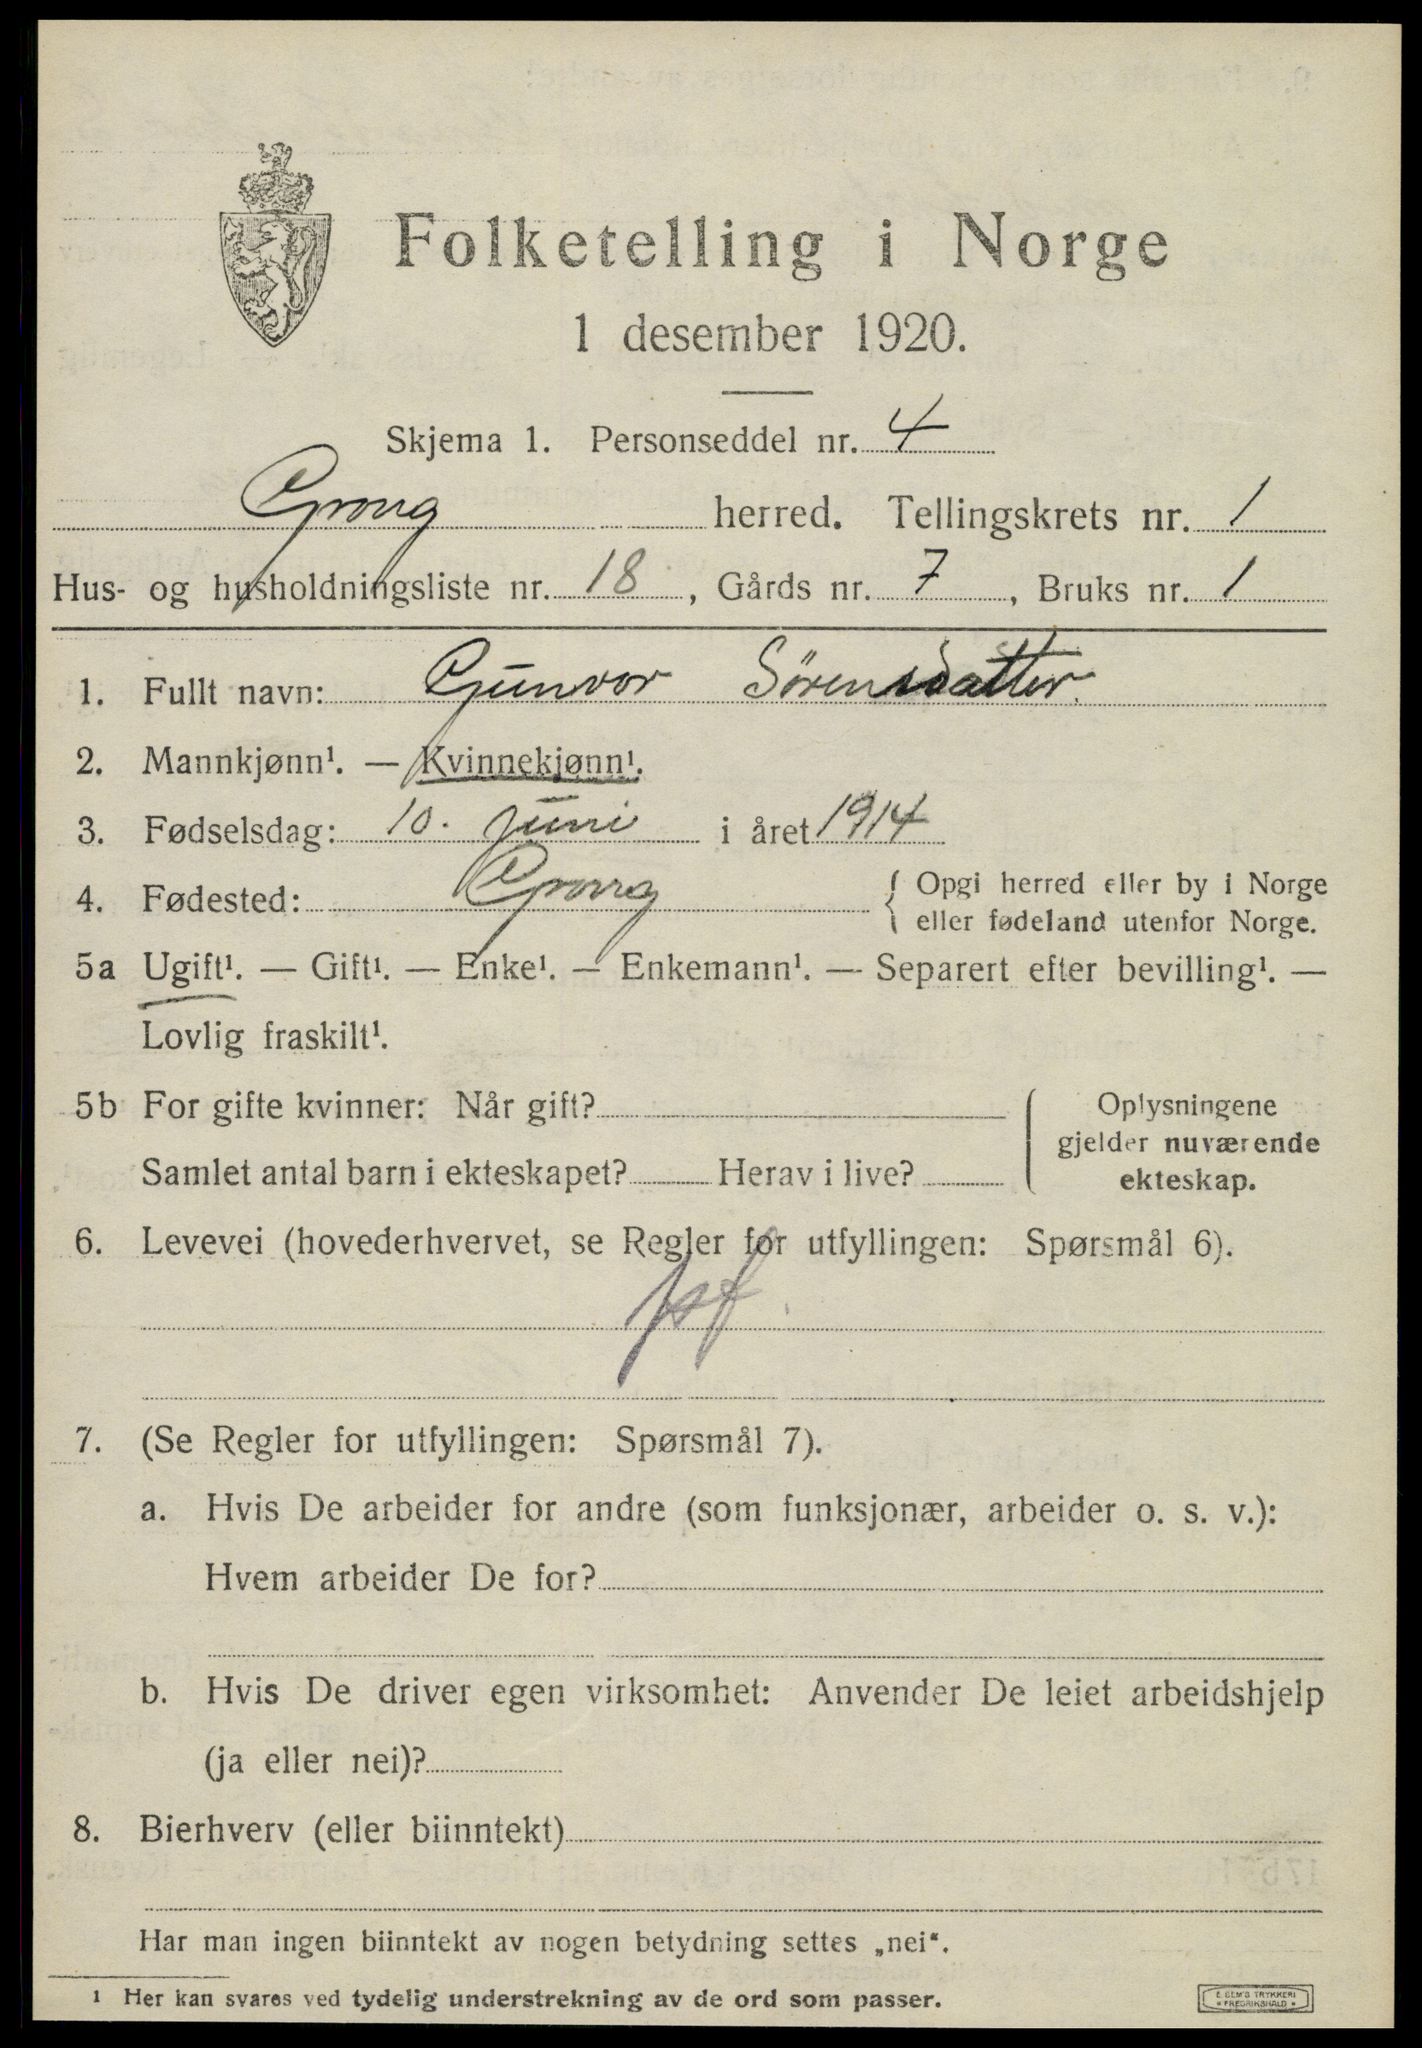 Folketelling i Norge
1 desember 1920.
Skjema 1. Personseddel nr. 4
Grong herred. Tellingskrets nr. 1
Hus- og husholdningsliste nr. 18, Gårds nr. 7, Bruks nr. 1
1. Fullt navn: Gunvor Sörensdatter.
2. Mannkjønn¹. — Kvinnekjønn¹.
3. Fødselsdag: 10. juni i året 1914
4. Fødested: Grong { Opgi herred eller by i Norge
eller fødeland utenfor Norge.
5a Ugift¹. — Gift¹. — Enke¹. — Enkemann¹. — Separert efter bevilling¹. —
Lovlig fraskilt¹.
5b For gifte kvinner: Når gift?
Samlet antal barn i ekteskapet? Herav i live?
Oplysningene
gjelder nuværende
ekteskap.
6. Levevei (hovederhvervet, se Regler for utfyllingen: Spørsmål 6).
7. (Se Regler for utfyllingen: Spørsmål 7).
a. Hvis De arbeider for andre (som funksjonær, arbeider o. s. v.):
Hvem arbeider De for?
b. Hvis De driver egen virksomhet: Anvender De leiet arbeidshjelp
(ja eller nei)?
8. Bierhverv (eller biinntekt)
Har man ingen biinntekt av nogen betydning settes „nei“.
¹ Her kan svares ved tydelig understrekning av de ord som passer.
E. SEM'S TRYKKERI
FREDRIKSHALD